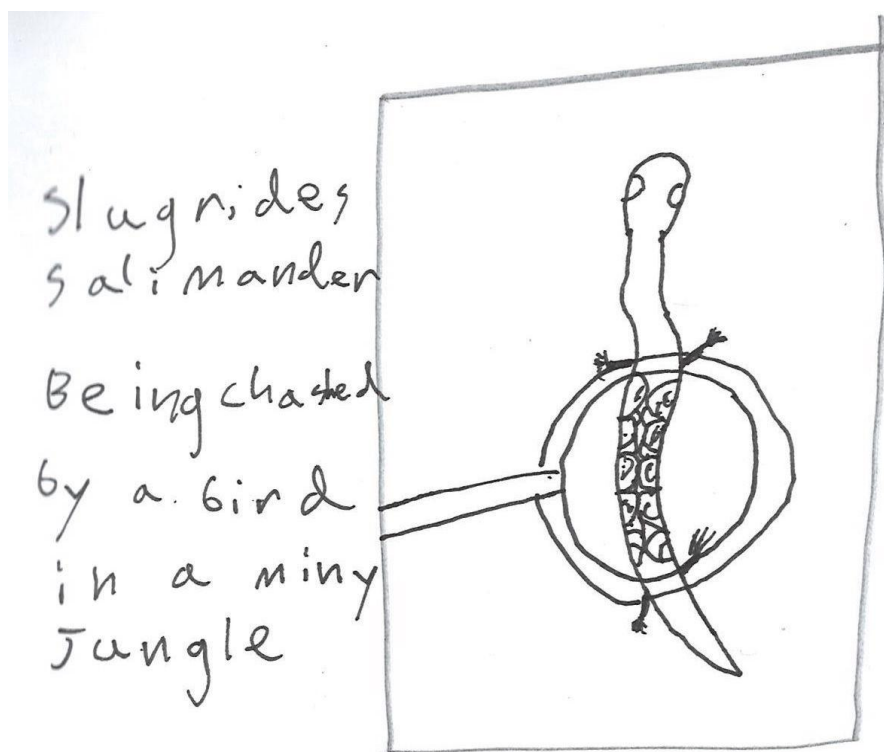 Slug rides
salimander
Being chashed
by a bird
in a miny
Jungle